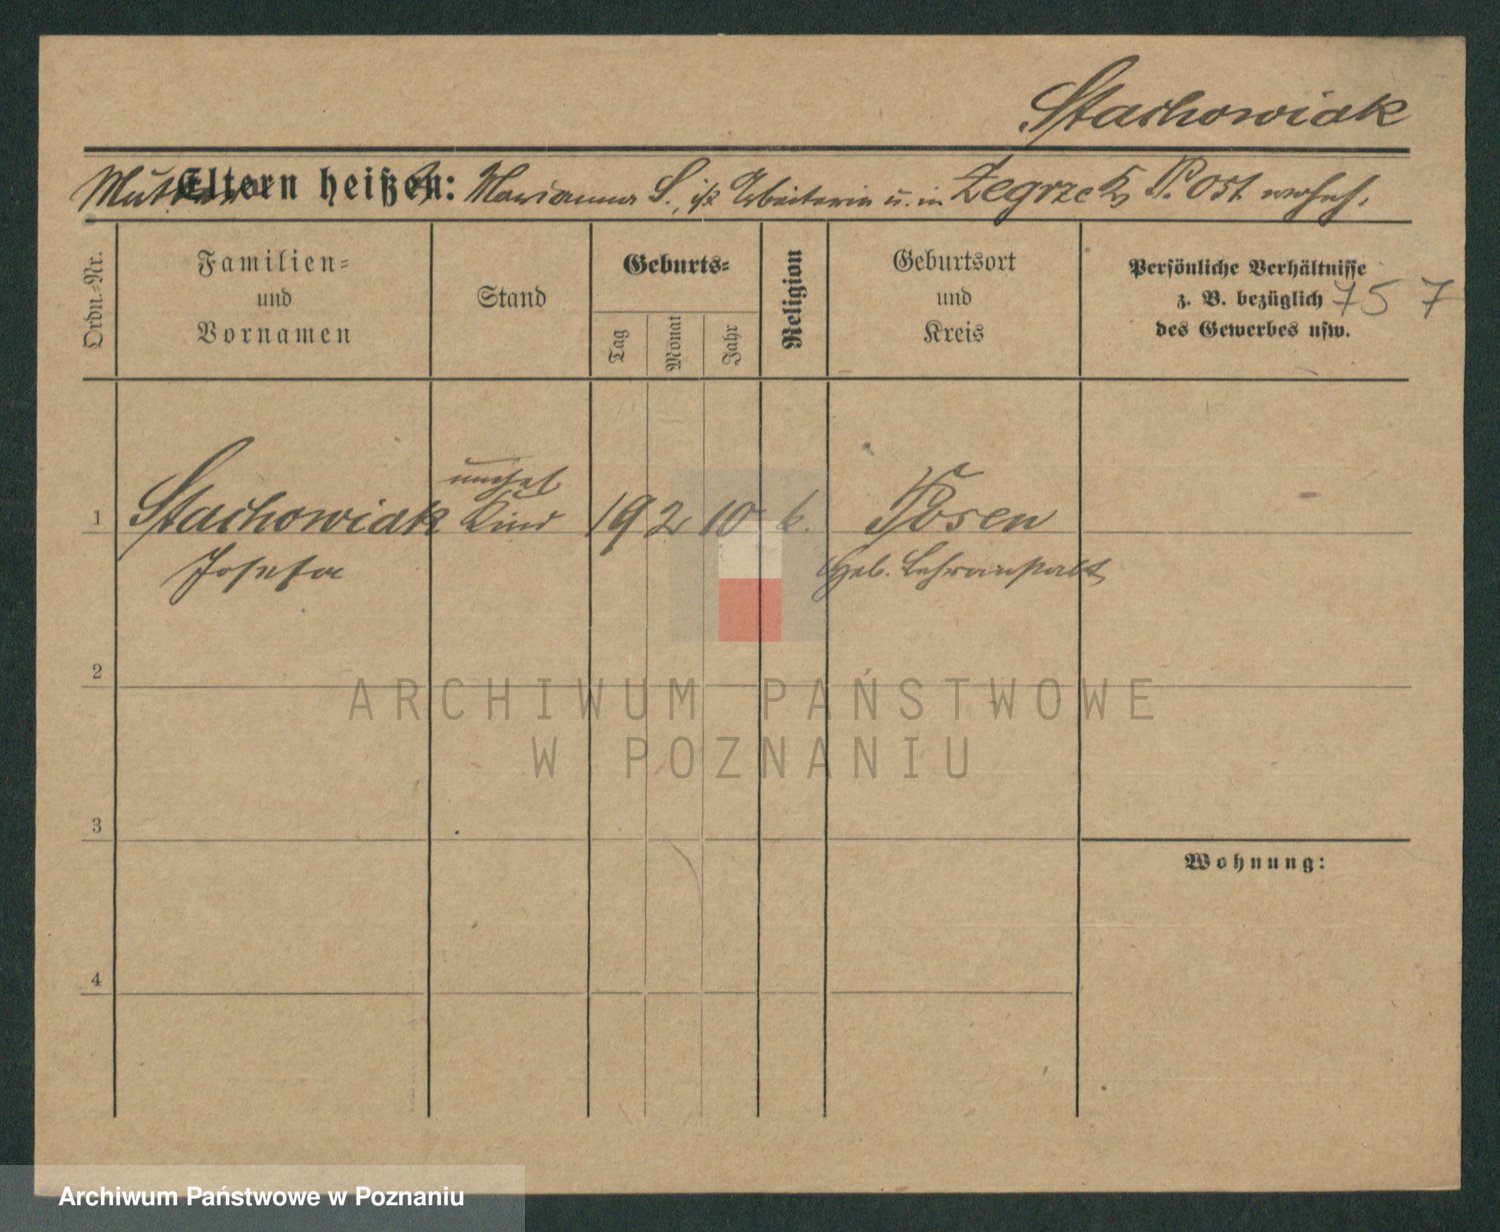 Stachowiak
Mutter Eltern heißen: t Marianna S., ist Arbeiterin u. in Zegrze Ks P. Ost wohnh.
Ordn.-Nr.
Familien-
und
Vornamen
Stand
Geburts-
Tag
Monat
Jahr
Religion
Geburtsort
und
Kreis
Persönliche Verhältnisse
z. B. bezüglich
des Gewerbes usw.
75 7
1
Stachowiak
Josefa
unehel.
Kind
19 2 10 k.
Posen
Heb. Lehranstalt
2
3
4
Wohnung:
ARCHIWUM PAŃSTWOWE
W POZNANIU
Archiwum Państwowe w Poznaniu